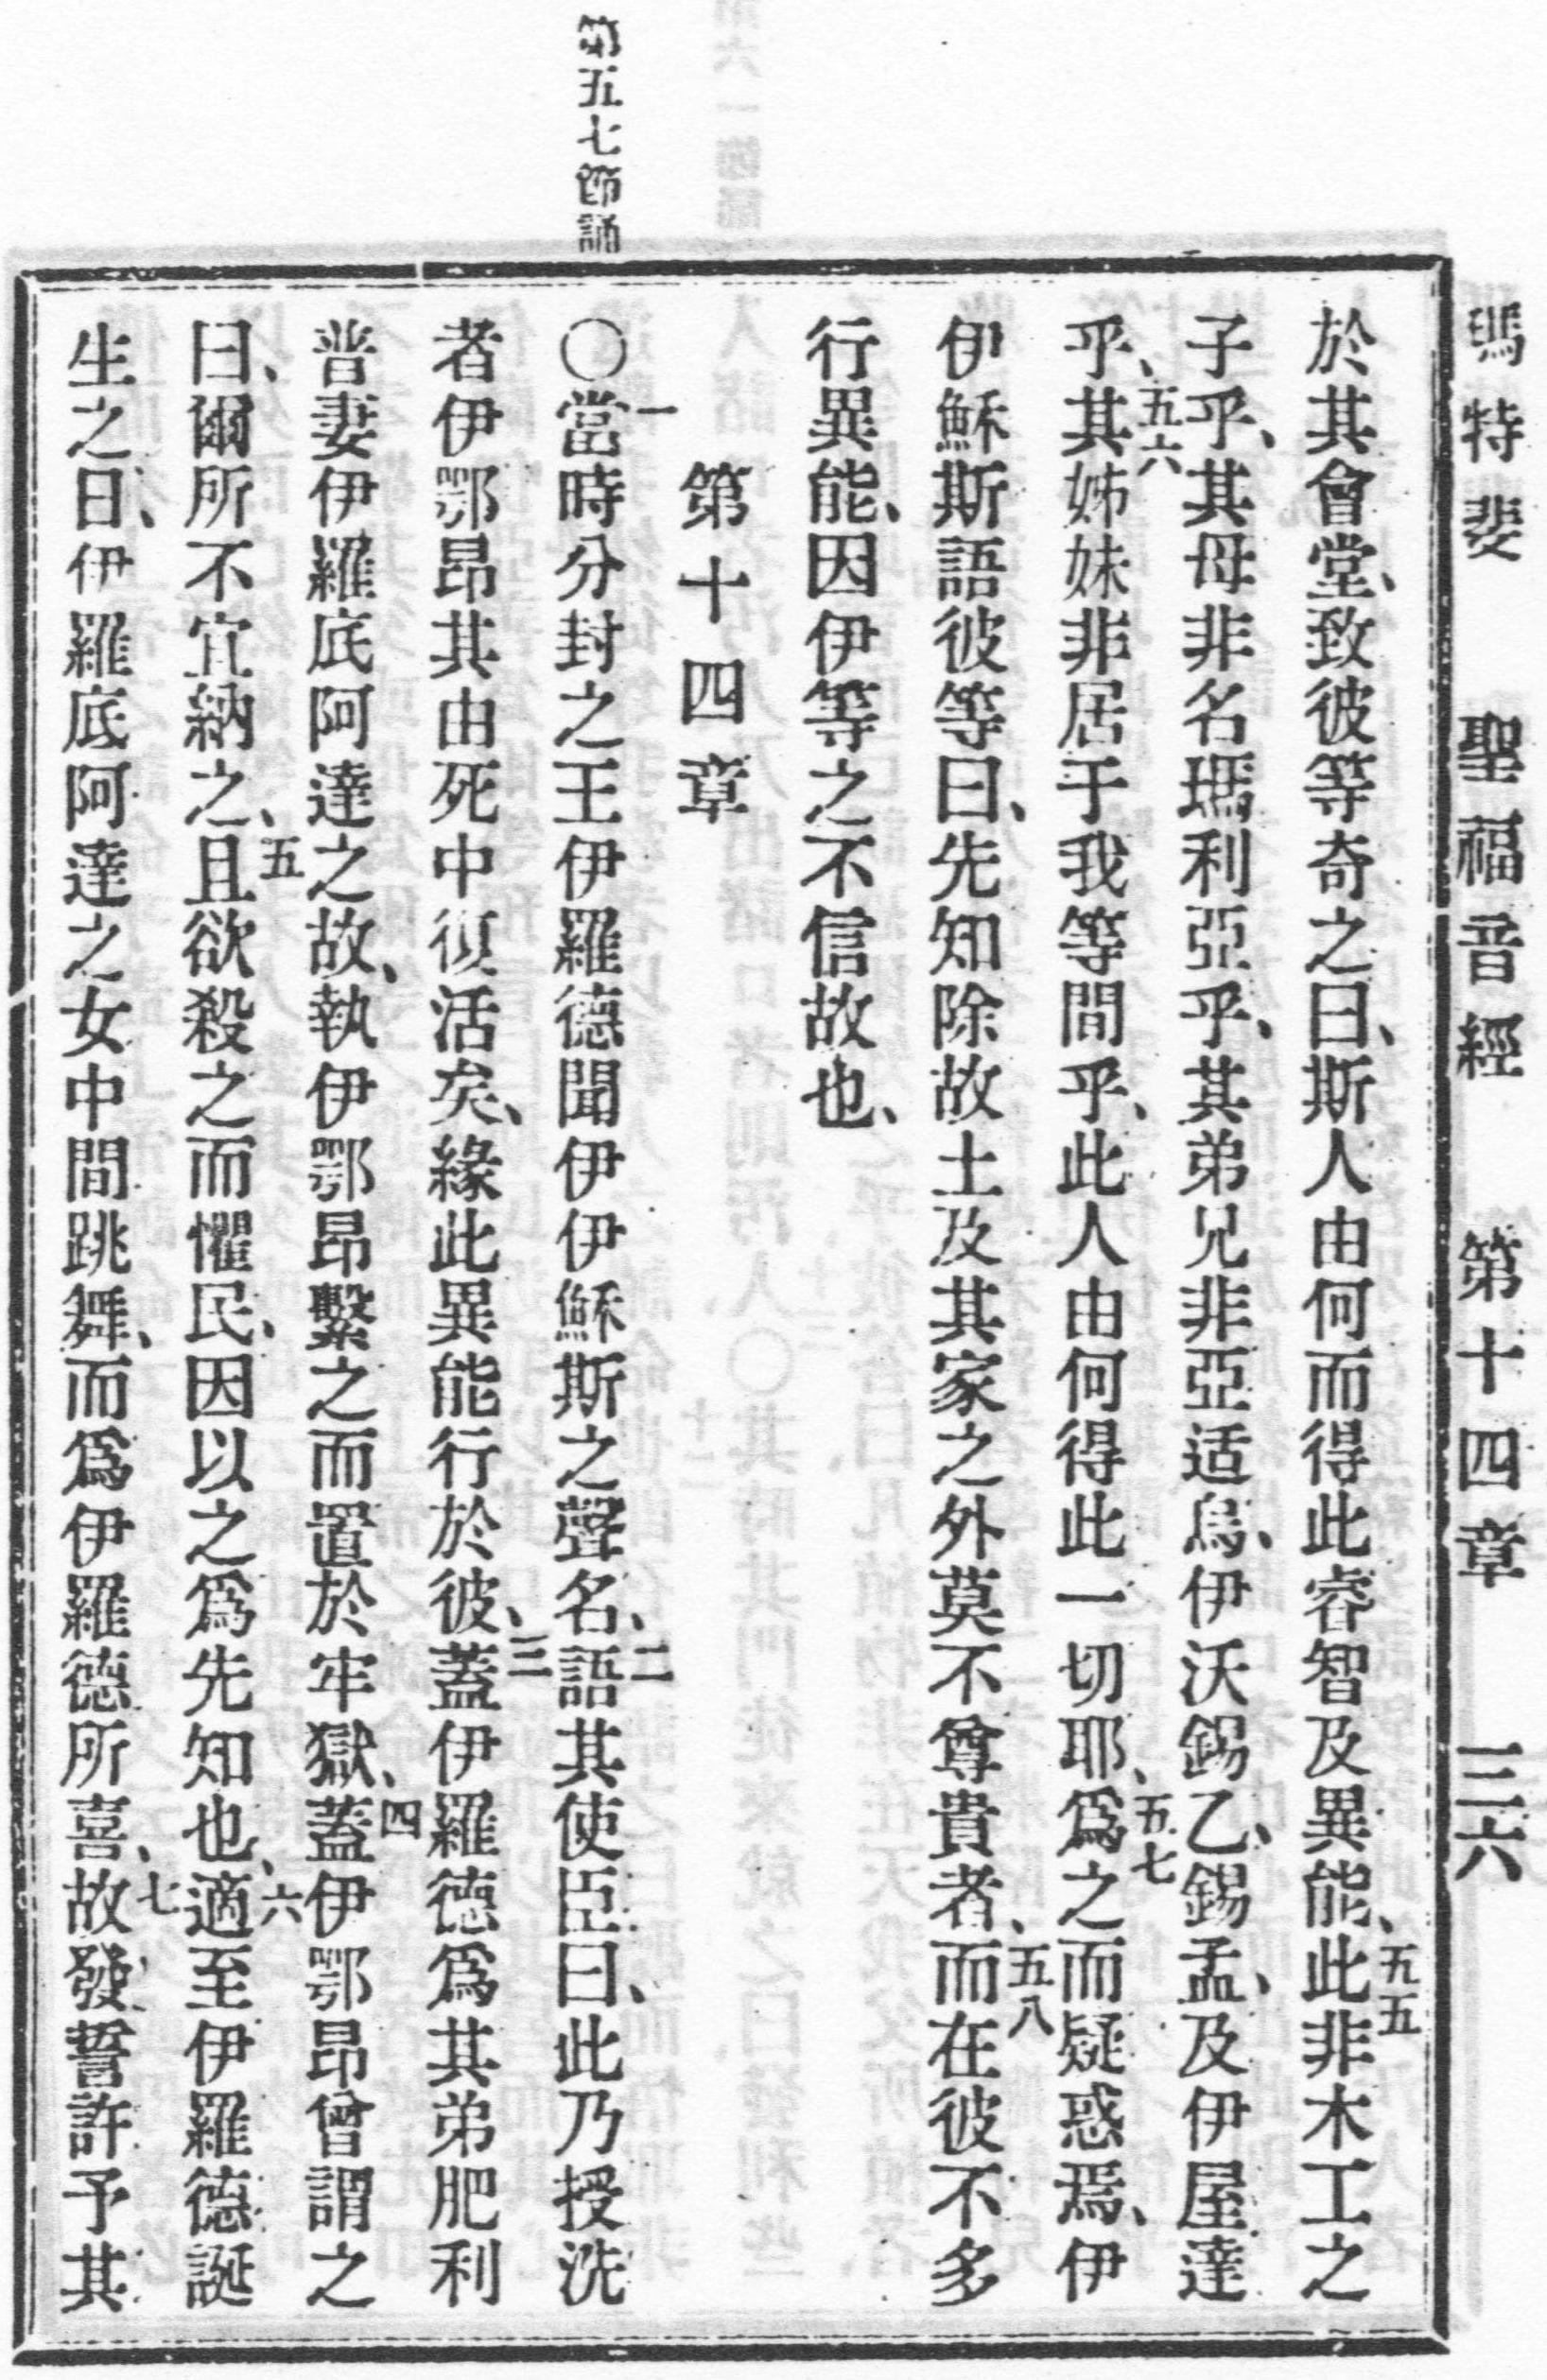 瑪特斐 聖福音經 第十四章 三六
於其會堂、致彼等奇之曰、斯人由何而得此睿智及異能、五五此非木工之
子乎、其母非名瑪利亞乎、其弟兄非亞适烏、伊沃錫乙、錫孟、及伊屋達
乎、五六其姊妹非居于我等間乎、此人由何得此一切耶、五七爲之而疑惑焉、伊
伊穌斯語彼等曰、先知除故土及其家之外莫不尊貴者、五八而在彼不多
行異能、因伊等之不信故也、
第十四章
第五七節誦
〇一當時分封之王伊羅德聞伊伊穌斯之聲名、二語其使臣曰、此乃授洗
者伊鄂昂其由死中復活矣、緣此異能行於彼、三蓋伊羅德爲其弟肥利
普妻伊羅底阿達之故、執伊鄂昂繫之而置於牢獄、四蓋伊鄂昂曾謂之
曰、爾所不宜納之、五且欲殺之而懼民、因以之爲先知也、六適至伊羅德誕
生之日、伊羅底阿達之女中間跳舞、而爲伊羅德所喜、七故發誓許予其